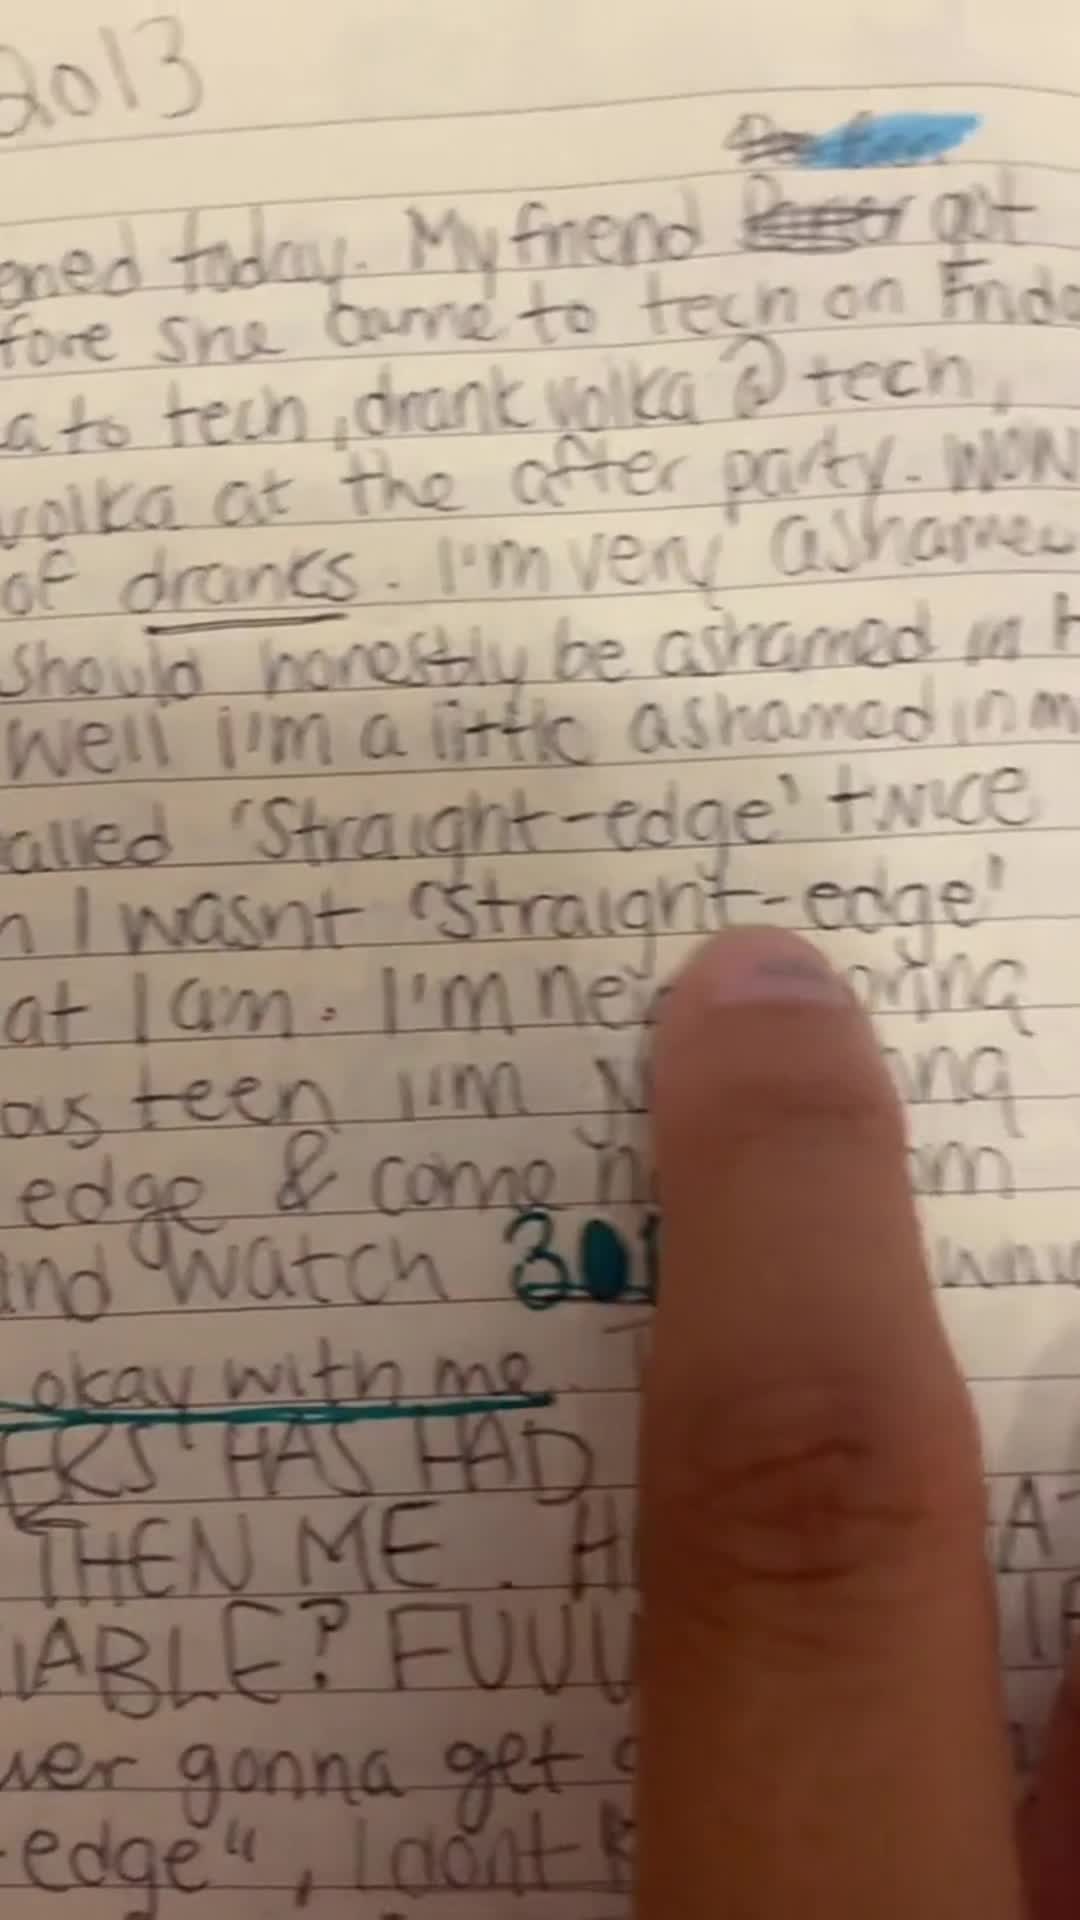 2013
ened today. My friend got
fore she came to tech on Frida
a to tech, drank volka @ tech,
volka at the after party. WOW
of dranks. I'm very ashamed
should honestly be ashamed in h
Well i'm a little ashamed in m
alled 'Straight-edge' twice
n I wasnt 'straight-edge'
at I am. I'm
ous teen I'm
edge & come
and watch
okay with me.
ERS' HAS HAD
THEN ME. H
IABLE? FUUU
ver gonna get
-edge", I dont